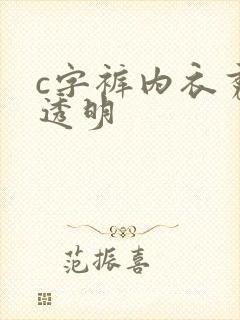 c字裤内衣
透明
范振喜